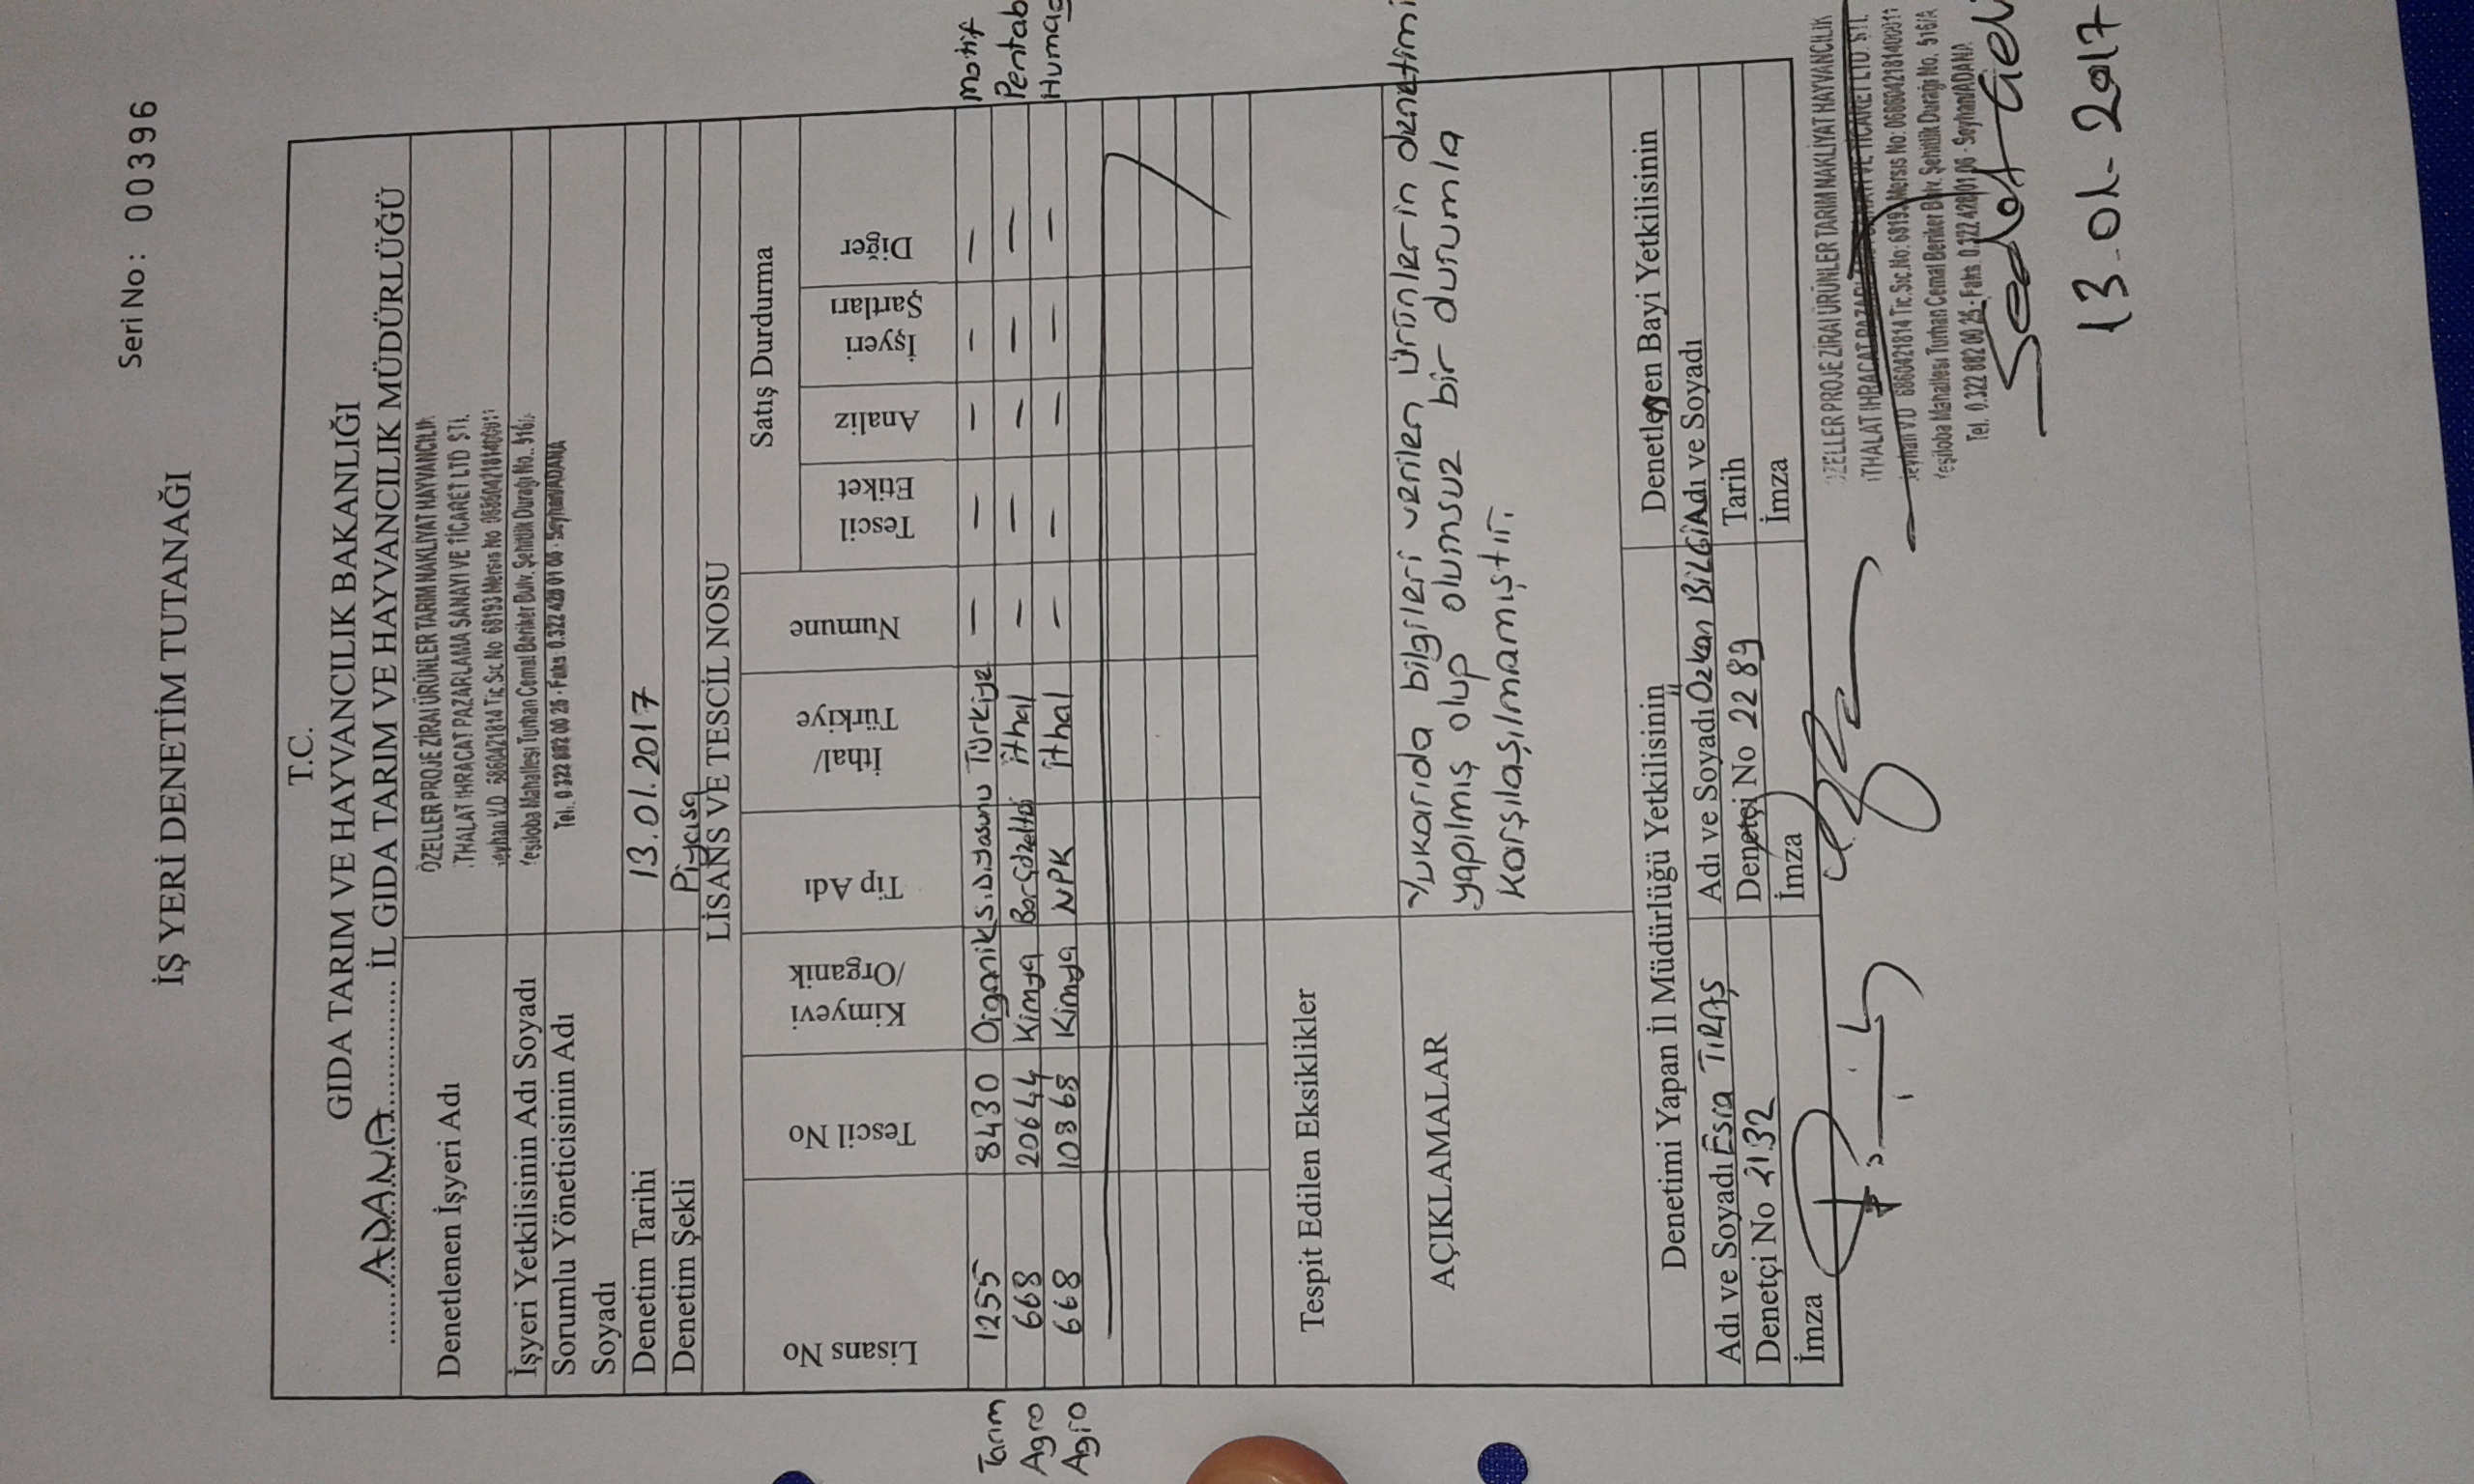 Seri No : 00396
İŞ YERİ DENETİM TUTANAĞI
T.C.
GIDA TARIM VE HAYVANCILIK BAKANLIĞI
......ADANA.............. İL GIDA TARIM VE HAYVANCILIK MÜDÜRLÜĞÜ
Denetlenen İşyeri Adı
ÖZELLER PROJE ZİRAİ ÜRÜNLER TARIM NAKLİYAT HAYVANCILIK
İTHALAT İHRACAT PAZARLAMA SANAYİ VE TİCARET LTD ŞTİ.
Seyhan V.D 6860421814 Tic.Sic.No 68193 Mersis No
İşyeri Yetkilisinin Adı Soyadı
Yeşiloba Mahallesi Turhan Cemal Beriker Bulv. Şehitlik Durağı No.. 516/A
Sorumlu Yöneticisinin Adı
Soyadı
Tel. 0.322 882 00 25 - Faks: 0.322 428 01 06 - Seyhan/ADANA
Denetim Tarihi 13.01.2017
Denetim Şekli Piyasa
LİSANS VE TESCİL NOSU
Lisans No
Tescil No
Kimyevi
/Organik
Tip Adı
İthal/
Türkiye
Numune
Satış Durdurma
Tescil
Etiket
Analiz
İşyeri
Şartları
Diğer
Tarım 1255 8430 Organik S.D.Yosunu Türkiye — — — — — Motif
Agro 668 20644 Kimya Bor Çözeltisi İthal — — — — — Pentab
Agro 668 10868 Kimya NPK İthal — — — — — Humag
Tespit Edilen Eksiklikler
AÇIKLAMALAR
Yukarıda bilgileri verilen ürünlerin denetimi
yapılmış olup olumsuz bir durumla
karşılaşılmamıştır.
Denetimi Yapan İl Müdürlüğü Yetkilisinin
Denetlenen Bayi Yetkilisinin
Adı ve Soyadı Esra TIRAŞ
Adı ve Soyadı Özkan BİLGİ
Adı ve Soyadı
Denetçi No 2132
Denetçi No 2289
Tarih
İmza
İmza
İmza
ÖZELLER PROJE ZİRAİ ÜRÜNLER TARIM NAKLİYAT HAYVANCILIK
İTHALAT İHRACAT PAZARLAMA SANAYİ VE TİCARET LTD. ŞTİ.
Seyhan V.D 6860421814 Tic.Sic.No: 68193 Mersis No: 0686042181400011
Yeşiloba Mahallesi Turhan Cemal Beriker Bulv. Şehitlik Durağı No. 516/A
Tel. 0.322 882 00 25 - Faks. 0.322 428 01 06 - Seyhan/ADANA
Sedat
13.01.2017